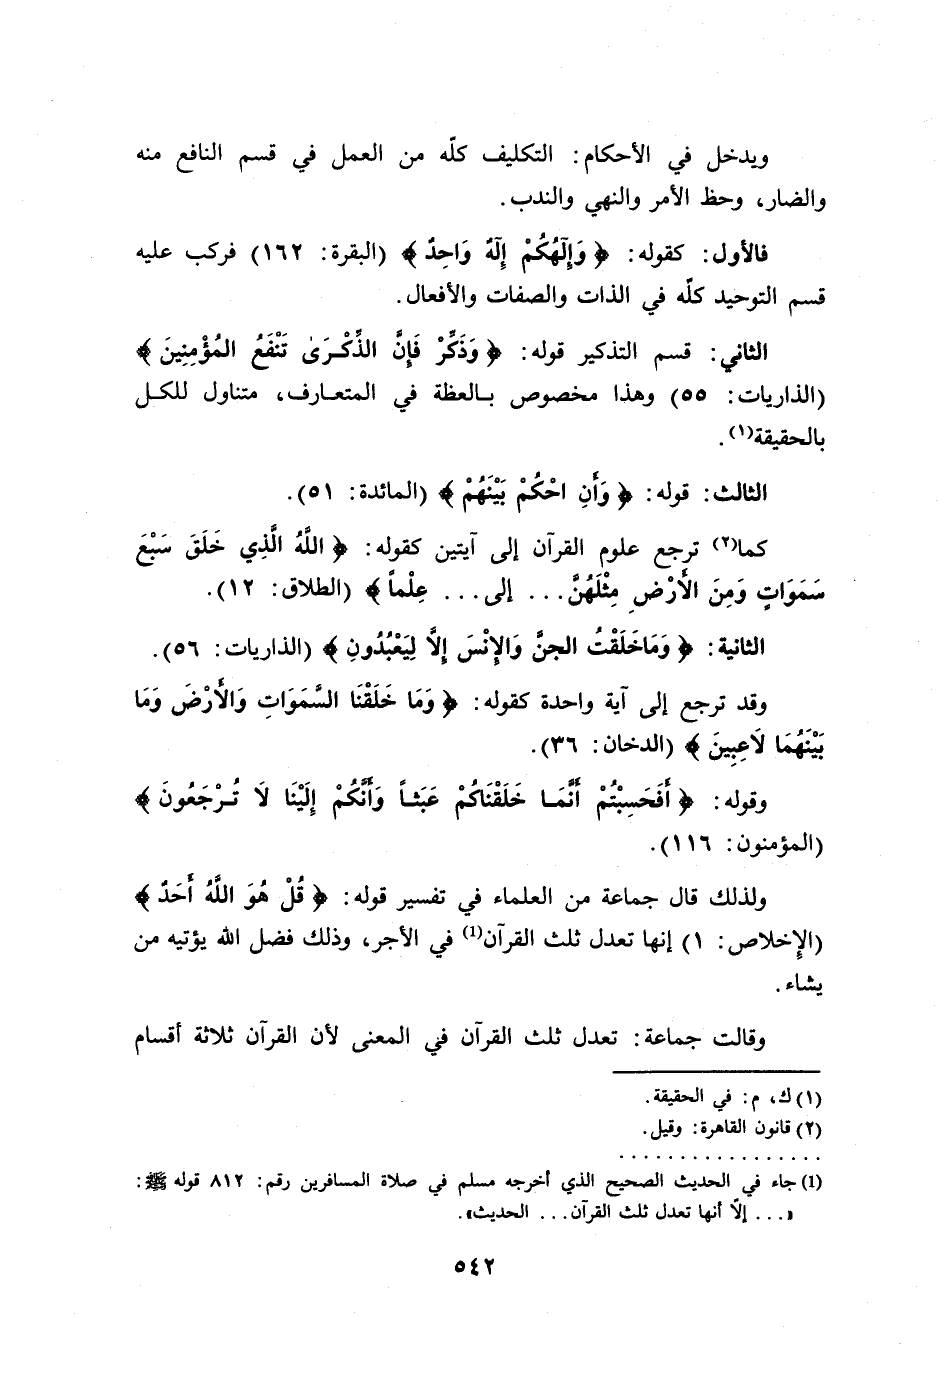 ويدخل في الأحكام: التكليف كلّه من العمل في قسم النافع منه
والضار، وحظ الأمر والنهي والندب.
فالأول: كقوله: ﴿ وَإِلَهُكُمْ إِلَهٌ وَاحِدٌ ﴾ (البقرة: ١٦٢) فركب عليه
قسم التوحيد كلّه في الذات والصفات والأفعال.
الثاني: قسم التذكير قوله: ﴿ وَذَكِّرْ فَإِنَّ الذِّكْرَىٰ تَنْفَعُ المُؤْمِنِينَ ﴾
(الذاريات: ٥٥) وهذا مخصوص بالعظة في المتعارف، متناول للكل
بالحقيقة(١).
الثالث: قوله: ﴿ وَأَنِ احْكُمْ بَيْنَهُمْ ﴾ (المائدة: ٥١).
كما(٢) ترجع علوم القرآن إلى آيتين كقوله: ﴿ اللَّهُ الَّذِي خَلَقَ سَبْعَ
سَمَوَاتٍ وَمِنَ الأَرْضِ مِثْلَهُنَّ... إلى... عِلْماً ﴾ (الطلاق: ١٢).
الثانية: ﴿ وَمَاخَلَقْتُ الجنَّ وَالإِنْسَ إِلَّا لِيَعْبُدُونِ ﴾ (الذاريات: ٥٦).
وقد ترجع إلى آية واحدة كقوله: ﴿ وَمَا خَلَقْنَا السَّمَوَاتِ وَالأَرْضَ وَمَا
بَيْنَهُمَا لَاعِبِينَ ﴾ (الدخان: ٣٦).
وقوله: ﴿ أَفَحَسِبْتُمْ أَنَّمَا خَلَقْنَاكُمْ عَبَثاً وَأَنَّكُمْ إِلَيْنَا لَا تُرْجَعُونَ ﴾
(المؤمنون: ١١٦).
ولذلك قال جماعة من العلماء في تفسير قوله: ﴿ قُلْ هُوَ اللَّهُ أَحَدٌ ﴾
(الإخلاص: ١) إنها تعدل ثلث القرآن(1) في الأجر، وذلك فضل الله يؤتيه من
يشاء.
وقالت جماعة: تعدل ثلث القرآن في المعنى لأن القرآن ثلاثة أقسام
(١) ك، م: في الحقيقة.
(٢) قانون القاهرة: وقيل.
(1) جاء في الحديث الصحيح الذي أخرجه مسلم في صلاة المسافرين رقم: ٨١٢ قوله ﷺ:
«... إلاّ أنها تعدل ثلث القرآن... الحديث».
٥٤٢